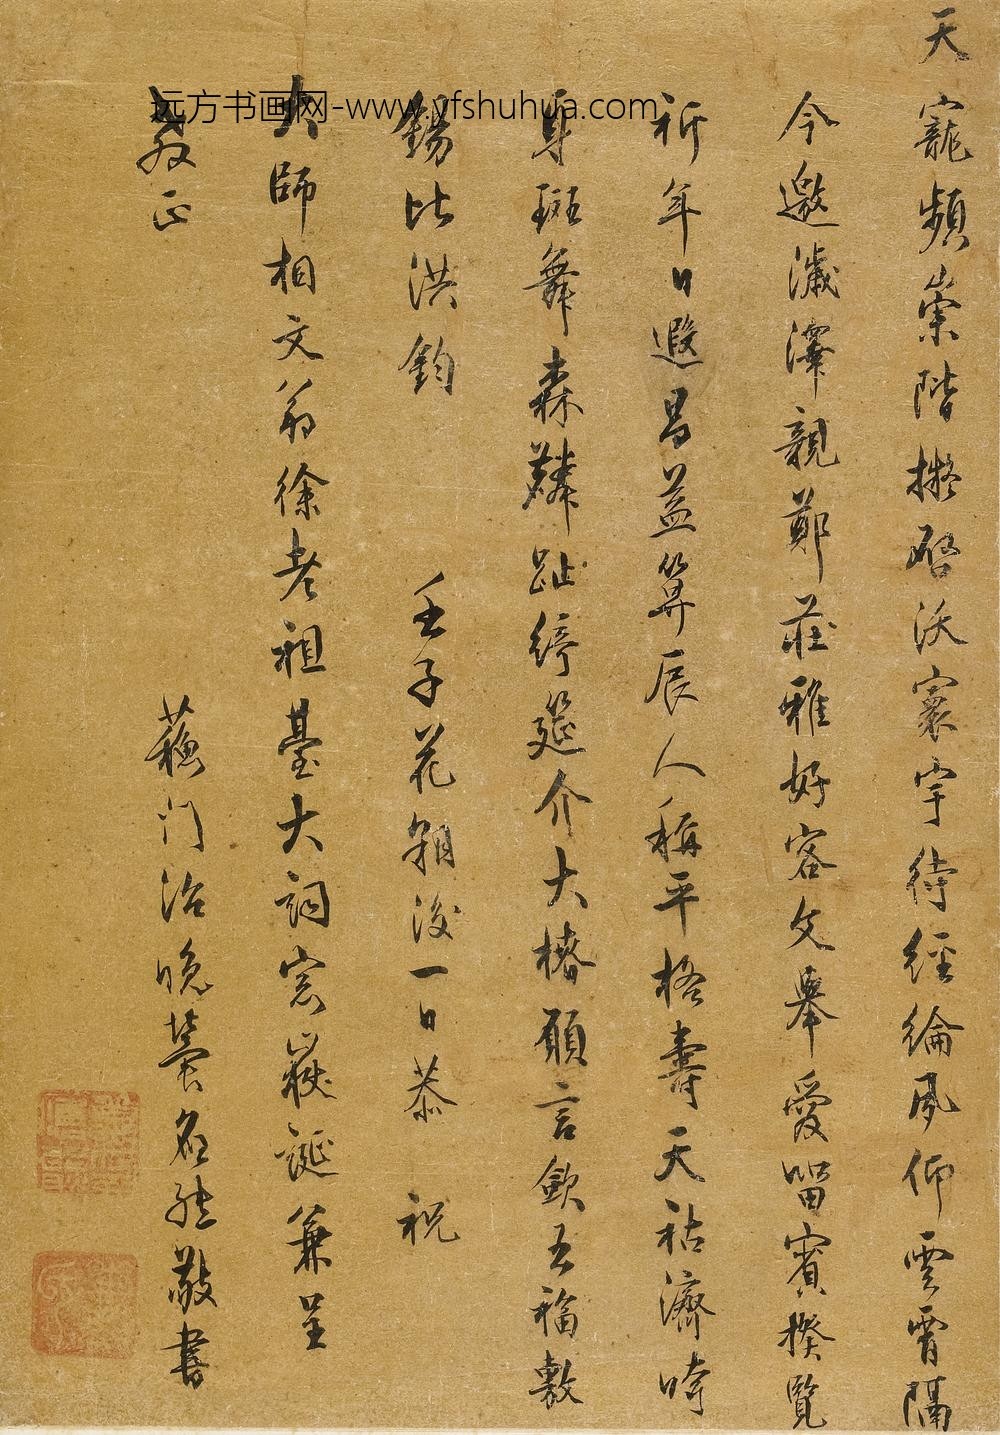 天
寵頻崇階擬啓沃寰宇待經綸夙仰雲霄隔
今邀濊澤親鄭莊雅好客文舉愛留賓揆覽
祈年日遐昌益算辰人稱平格壽天祜濟時
身斑舞森麟趾綺筵介大椿願言歛五福敷
錫比洪鈞
壬子花朝後一日恭祝
大師相文翁徐老祖臺大詞宗嶽誕兼呈
教正
蘇門治晚 名 敬書
远方书画网-www.yfshuhua.com